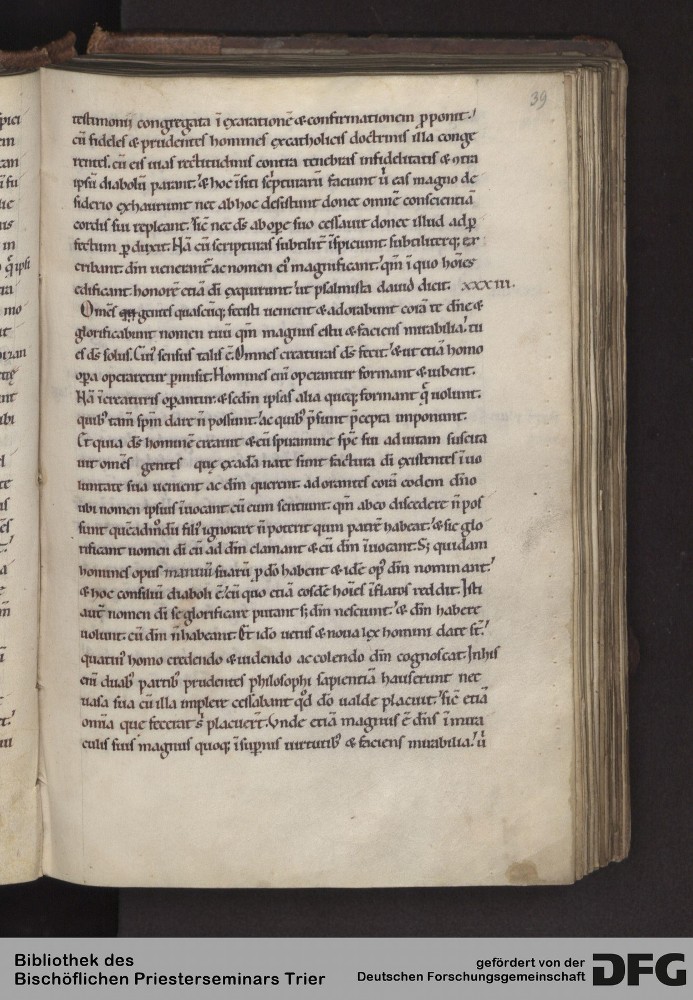 39
testimonij congregata ī exaratione & confirmationem ꝓponit.
cū fideles & prudentes homines excatholicis doctrinis illa conge
rentes. cū eis uias rectitudinis contra tenebras infidelitatis & ꝯtra
ipsū diabolū parant. & hoc īsiti sc̄pturarū faciunt ů eas magno de
siderio exhauriunt nec ab hoc desistunt donec omnē conscientiā
cordis sui repleant. sic̄ nec ds̄ ab oꝑe suo cessauit donec illud ad ꝑ
fectum ꝑduxit. Nā cū scripturas subtilit̄ īspiciunt. subtiliterq; ex
cribunt. dīm uenerant̄ ac nomen ei᾽ magnificant. qm̄ ī quo hoīes
edificant honorē etiā dī exquirunt. ut psalmista dauid dicit. xxxiii.
Omēs gentes quascūq; fecisti uenient & adorabunt corā te dn̄e &
glorificabunt nomen tuū qm̄ magnus es tu & faciens mirabilia. tu
es ds̄ solus. Cui᾽ sensus talis ē. Omnes creaturas ds̄ fecit. & ut etiā homo
opa operaretur ꝑmisit. Homines eni operantur formant & iubent.
Nā ī creaturis oꝑantur. & sedm ipsas alia queq; formant q̄ uolunt.
quib᾽ tam̄ spm̄ dare n̄ possunt. ac quib᾽ p̄sunt p̄cepta imponunt.
Et quia ds̄ hominē creauit & eū spiramine spē sui ad uitam suscita
uit omēs gentes que exadā nate sunt factura dī existentes ī uo
luntate sua uenient ac dīm querent. adorantes corā eodem dn̄o
ubi nomen ipsius īuocant. cū eum sentiunt. qm̄ abeo discedere n̄ pos
sunt quēadm̄dū fili᾽ ignorare n̄ poterit quin patrē habeat. & sic glo
rificant nomen dī cū ad dīm clamant & cū dīm īuocant. S; quidam
homines opus manuū suarū ꝓ dō habent & idē op᾽ dīm nominant.
& hoc consiliū diaboli ē. cū quo etiā eosdē hoīes īflatos reddit. Isti
aut̄ nomen dī se glorificare putant s; dīm nesciunt. & dīm habere
uolunt. cū dīm n̄ habeant. Et idō uetus & noua lex homini date st̄.
quatin᾽ homo credendo & uidendo ac colendo dīm cognoscat. In his
eni duab᾽ partib᾽ prudentes philosophi sapientiā hauserunt nec
uasa sua cū illa implere cessabant qd̄ dō ualde placuit. sic̄ etiā
omīa que fecerat s᾽ placuer̄t. Vnde etiā magnus ē dn̄s ī mira
culis suis magnus quoq; ī suꝑnis uirtutib᾽ & faciens mirabilia. ů
Bibliothek des
Bischöflichen Priesterseminars Trier
gefördert von der
Deutschen Forschungsgemeinschaft
DFG